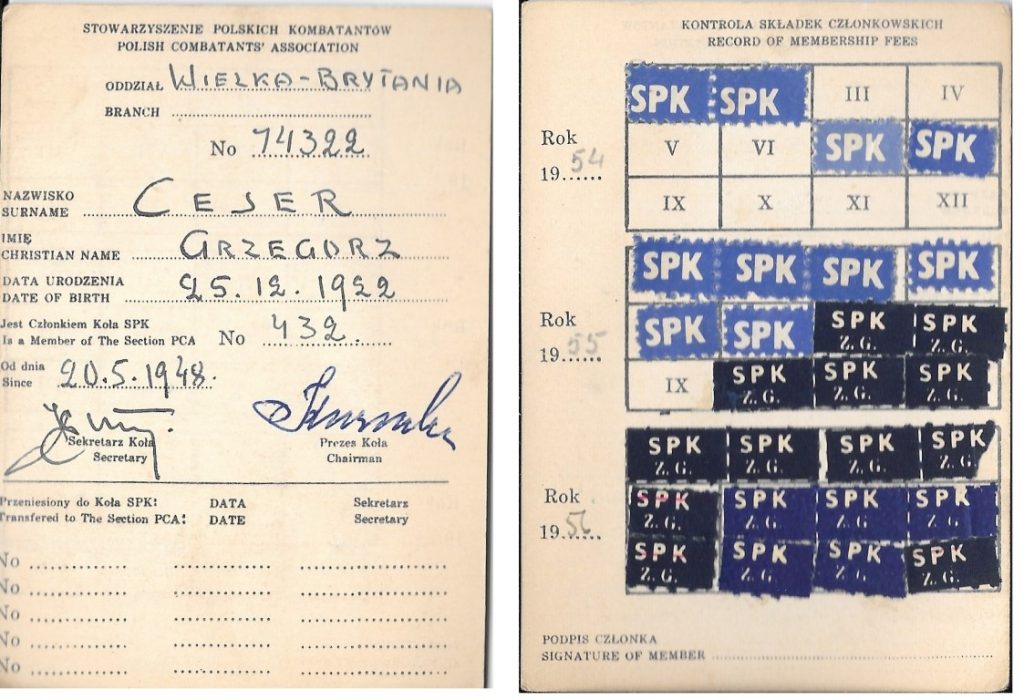 STOWARZYSZENIE POLSKICH KOMBATANTÓW
POLISH COMBATANTS' ASSOCIATION
ODDZIAŁ WIELKA-BRYTANIA
BRANCH
No 74322
NAZWISKO
SURNAME CEJER
IMIĘ
CHRISTIAN NAME GRZEGORZ
DATA URODZENIA
DATE OF BIRTH 25.12.1922
Jest Członkiem Koła SPK
Is a Member of The Section PCA No 432.
Od dnia
Since 20.5.1948.
Sekretarz Koła
Secretary
Prezes Koła
Chairman
Przeniesiony do Koła SPK: DATA Sekretarz
Transfered to The Section PCA: DATE Secretary
No
No
No
No
No
KONTROLA SKŁADEK CZŁONKOWSKICH
RECORD OF MEMBERSHIP FEES
Rok
1954
SPK SPK III IV
V VI SPK SPK
IX X XI XII
Rok
1955
SPK SPK SPK SPK
SPK SPK SPK Z. G. SPK Z. G.
IX SPK Z. G. SPK Z. G. SPK Z. G.
Rok
1956
SPK Z. G. SPK Z. G. SPK Z. G. SPK Z. G.
SPK Z. G. SPK Z. G. SPK Z. G. SPK Z. G.
SPK Z. G. SPK Z. G. SPK Z. G. SPK Z. G.
PODPIS CZŁONKA
SIGNATURE OF MEMBER